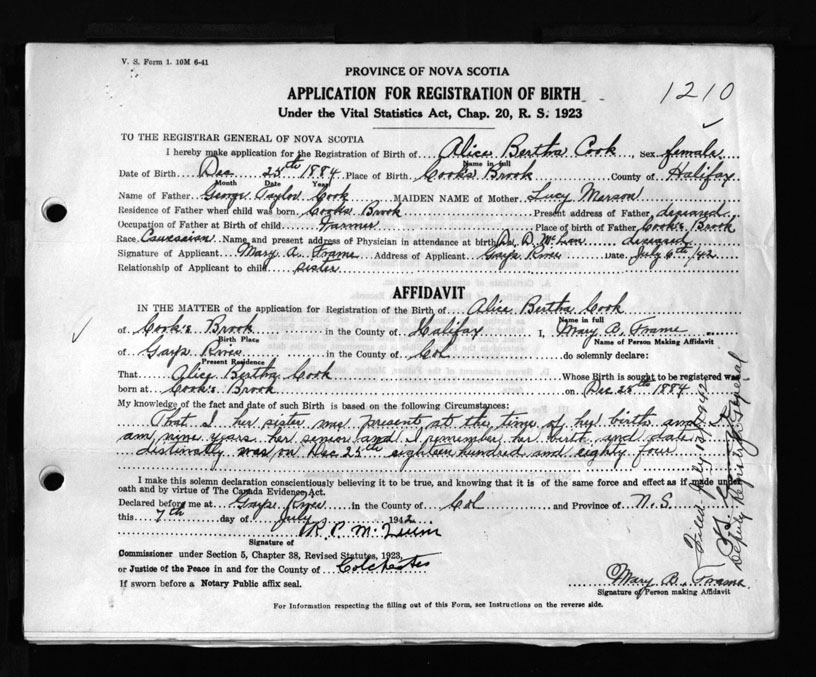 V. S. Form 1. 10M 6-41
PROVINCE OF NOVA SCOTIA
APPLICATION FOR REGISTRATION OF BIRTH
1210
Under the Vital Statistics Act, Chap. 20, R. S. 1923
TO THE REGISTRAR GENERAL OF NOVA SCOTIA
I hereby make application for the Registration of Birth of Alice Bertha Cook, Sex female
Name in full
Date of Birth Dec 25th 1884 Place of Birth Cooks Brook County of Halifax
Month Date Year
Name of Father George Taylor Cook MAIDEN NAME of Mother Lucy
Residence of Father when child was born Cooks Brook Present address of Father, deceased
Occupation of Father at Birth of child Farmer Place of birth of Father Cook's Brook
Race Caucasian Name and present address of Physician in attendance at birth deceased
Signature of Applicant Mary A. Frame Address of Applicant Gays River Date July 6th /42
Relationship of Applicant to child sister
AFFIDAVIT
IN THE MATTER of the application for Registration of the Birth of Alice Bertha Cook
Name in full
of Cook's Brook in the County of Halifax I, Mary A. Frame
Birth Place Name of Person Making Affidavit
of Gays River in the County of Col do solemnly declare:
Present Residence
That Alice Bertha Cook Whose Birth is sought to be registered was
born at Cook's Brook on Dec 25th 1884
My knowledge of the fact and date of such Birth is based on the following Circumstances:
That I her sister was present at the time of her birth and I
am nine years her senior and I remember her birth and date
distinctly was on Dec 25th eighteen hundred and eighty four
I make this solemn declaration conscientiously believing it to be true, and knowing that it is of the same force and effect as if made under
oath and by virtue of The Canada Evidence Act.
Declared before me at Gays River in the County of Col and Province of N.S.
this 7th day of July 1942
R. P.
Signature of
Commissioner under Section 5, Chapter 38, Revised Statutes, 1923,
or Justice of the Peace in and for the County of Colchester
If sworn before a Notary Public affix seal.
Mary A. Frame
Signature of Person making Affidavit
For Information respecting the filling out of this Form, see Instructions on the reverse side.
Filed July 1942
Deputy Registrar General